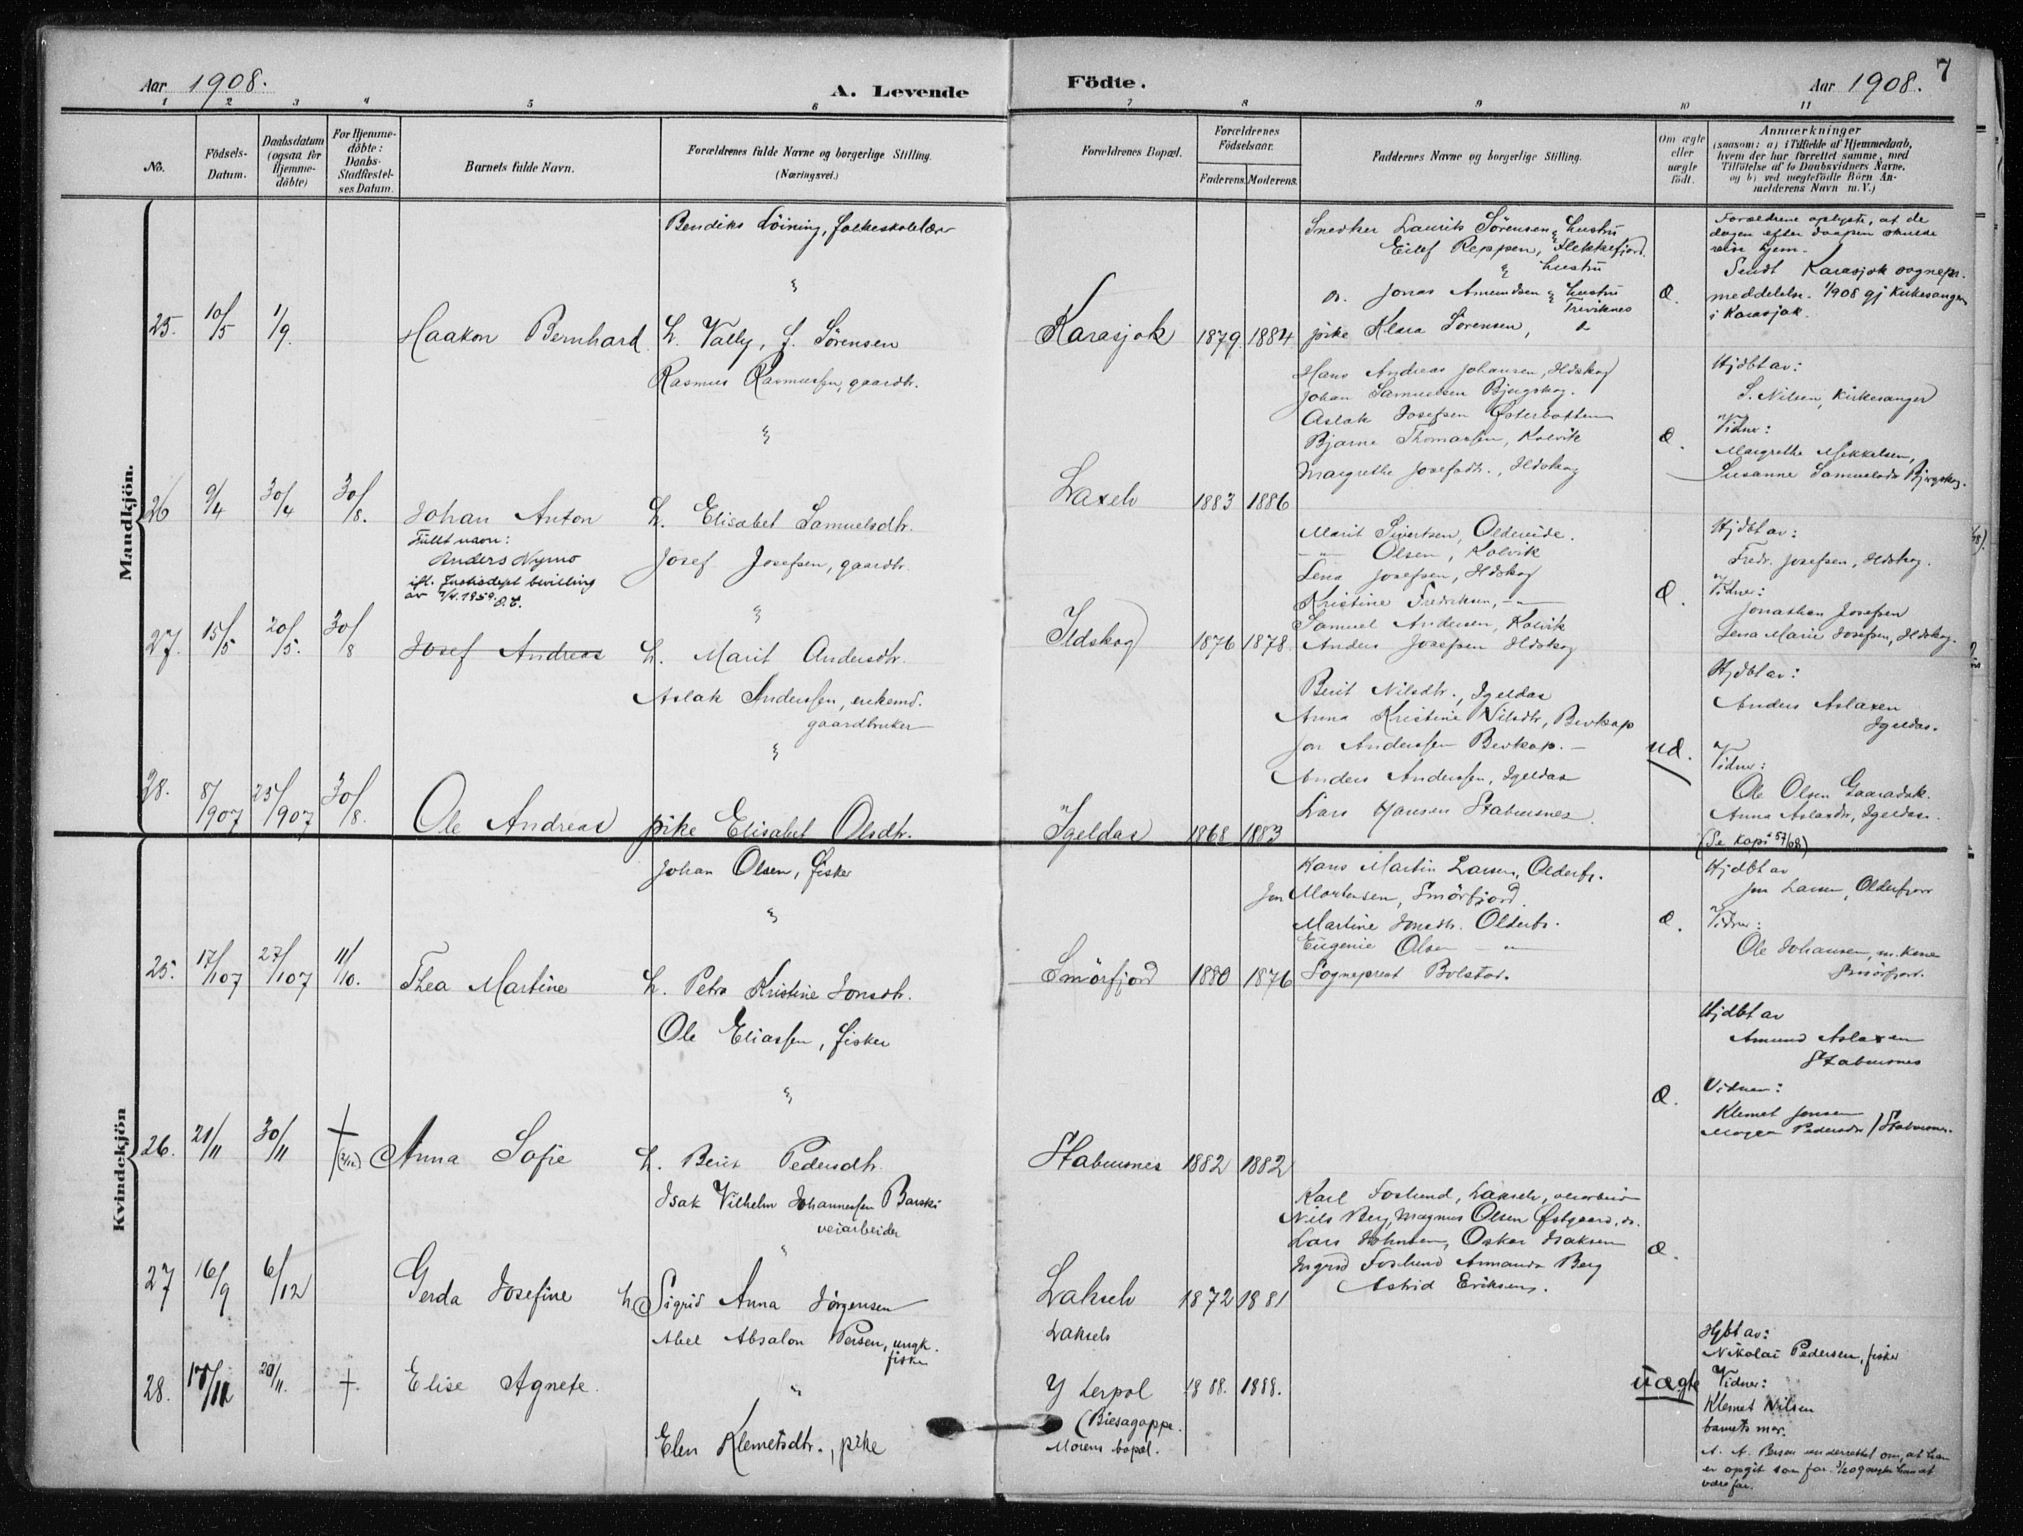 7
Aar 1908.
A. Levende
Födte.
Aar 1908.
1 2 3 4 5 6 7 8 9 10 11
No.
Födsels-Datum.
Daabsdatum (ogsaa för Hjemmedöbte)
For Hjemmedöbte: Daabs-Stadfæstelses Datum.
Barnets fulde Navn.
Forældrenes fulde Navne og borgerlige Stilling. (Næringsvei.)
Forældrenes Bopæl.
Forældrenes Födselsaar.
Faderens. Moderens.
Faddernes Navne og borgerlige Stilling.
Om ægte eller uægte födt.
Anmærkninger
(saasom: a) i Tilfælde af Hjemmedaab, hvem der har forrettet samme, med Tilföielse af to Daabsvidners Navne, og b) ved uægtefödte Börn Anmelderens Navn m. V.)
Mandkjön.
25. 10/5 1/9
Haakon Bernhard
Bendiks Löining, folkeskolelærer
&
h. Vally, f. Sörensen
Karasjok 1879. 1884
Snedker Laurits Sörensen & hustru
Eilef Reppen, Flekkefjord
& hustru
do. Jonas Amundsen & hustru
Treviknes
pike Klara Sörensen,
æ.
Forældrene oplyste, at de
dagen efter daapen skulde
reise hjem.
Sendt Karasjok sognepr.
meddelelse. 1/908 gj kirkesanger
i Karasjok.
26 9/4 30/4 30/8.
Johan Anton
Rasmus Rasmussen, gaardbr.
&
h. Elisabet Samuelsdtr.
Laxelv 1883 1886
Hans Andreas Johansen, Ildskog
Johan Samuelsen Bjergskog.
Aslak Josefsen Østerbotten
Bjarne Thomassen, Kolvik
Margrethe Josefsdtr., Ildskog
æ.
Hjdbt av:
S. Nilsen, Kirkesanger
Vidner:
Margrethe Mekkelsen,
Susanne Samuelsdr Bjergskog.
27. 15/5 20/5. 30/8
Fullt navn:
Anders Nymo
ifl. Justisdept bevilling
av 7/4.1959.
Josef Andreas
Josef Josefsen, gaardbr.
&
h. Marit Andersdtr.
Ildskog 1876 1878.
Marit Sivertsen, Oldereide.
-"- Olsen, Kolvik
Lena Josefsen, Ildskog
Kristine Fredriksen, -"-
Samuel Andersen, Kolvik
Anders Josefsen Ildskog
æ.
Hjdbt av:
Fredr. Josefsen, Ildskog.
Vidner:
Jonathan Josefsen
Lena Marie Josefsen, Ildskog.
28. 8/1907 25/1907 30/8.
Ole Andreas
Aslak Anderssen, enkemd.
gaardbruker
&
pike Elisabet Olsdtr.
Igeldas 1868 1883
Berit Nilsdtr., Igeldas
Anna Kristine Nilsdtr, Bevkop
Jon Anderssen Bevkop.
Anders Anderssen, Igeldas
Lars Hansen Stabursnes.
uæ.
Hjdbt av:
Anders Aslaxen
Igeldas.
Vidner:
Ole Olsen Gaaradak.
Anna Aslaxdr, Igeldas.
(Se kopi 57/08)
Kvindekjön
25. 17/107 27/107 11/10.
Thea Martine
Johan Olsen, fisker
&
h. Petra Kristine Jonsdtr.
Smörfjord 1880 1876
Hans Martin Larsen, Olderfj.
Jon Mortensen, Smörfjord.
Martine Jonsdtr. Olderfj.
Eugenie Olsen -"-
Sogneprest Bolstad.
æ.
Hjdbt av
Jon Larsen, Olderfjord
Vidner:
Ole Johansen, m. kone
Smörfjord.
26. 21/11 30/11 †
Anna Sofie
Ole Eliassen, fisker
&
h. Berit Pedersdtr.
Stabursnes 1882 1882
æ.
Hjdbt av
Amund Aslaxen
Stabursnes
Vidner:
Klemet Jonsen
Magga Pedersdr / Stabursnes.
27 16/9 6/12
Gerda Josefine
Isak Vilhelm Johannessen Barski
veiarbeider
"
h. Sigrid Anna Jörgensen
Lakselv 1872 1881
Karl Foslund, Lakselv, veiarbeid
Nils Berg, Magnus Olsen Østgaard, do.
Lars Johnsen, Oskar Isaksen
Ingrid Foslund Amanda Berg
Astrid Eriksen.
æ.
28. 17/11 29/11. †
Elise Agnete.
Abel Absalon Persen, ungk.
fisker
"
Elen Klemetsdtr., pike
Lakselv
Y Lerpol
(Biesagoppe.
Morens bopæl.
1888. 1888.
uægte
Hjbt av:
Nikolai Pedersen, fisker
Vidner:
Klemet Nilsen
barnets mor.
A. A. Persen underrettet om, at han
er opgit som far.
være far.